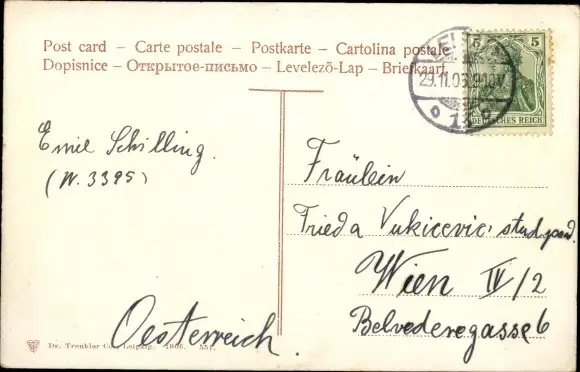 Post card – Carte postale – Postkarte – Cartolina postale
Dopisnice – Открытое-письмо – Levelező-Lap – Briefkaart
5 5
29.11.05.9-10V
DEUTSCHES REICH
Emil Schilling.
(N. 3395)
Fräulein
Frieda Vukicevic stud.
Wien IV/2
Belvederegasse 6
Oesterreich.
Dr. Trenkler Co., Leipzig. 1906. 551.